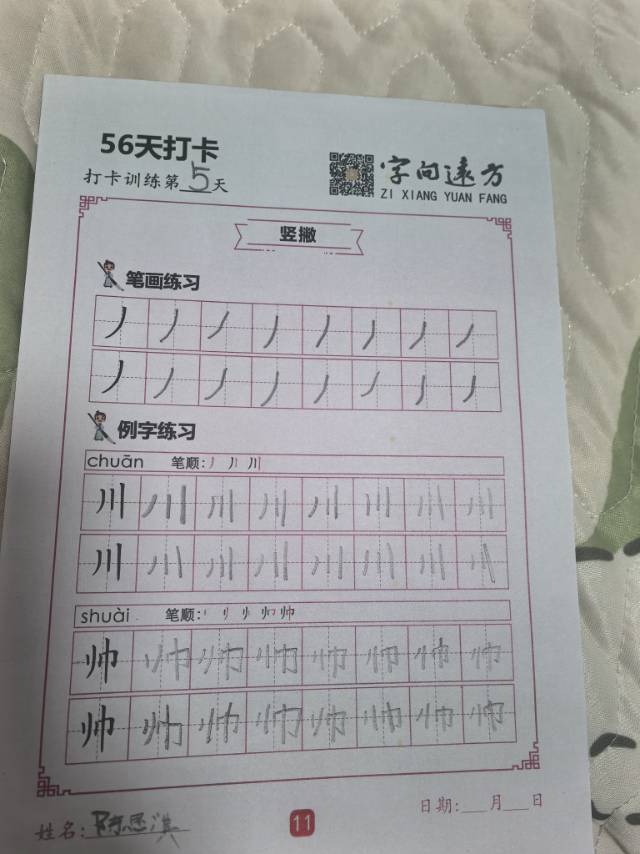 56天打卡
打卡训练第5天
字向远方
ZI XIANG YUAN FANG
竖撇
笔画练习
丿丿丿丿丿丿丿丿
丿丿丿丿丿丿丿丿
例字练习
chuān 笔顺:丿 丿丨 川
川川川川川川川川
川川川川川川川川
shuài 笔顺:
帅帅帅帅帅帅帅帅
帅帅帅帅帅帅帅帅
日期:___月___日
姓名:陈思淇
11